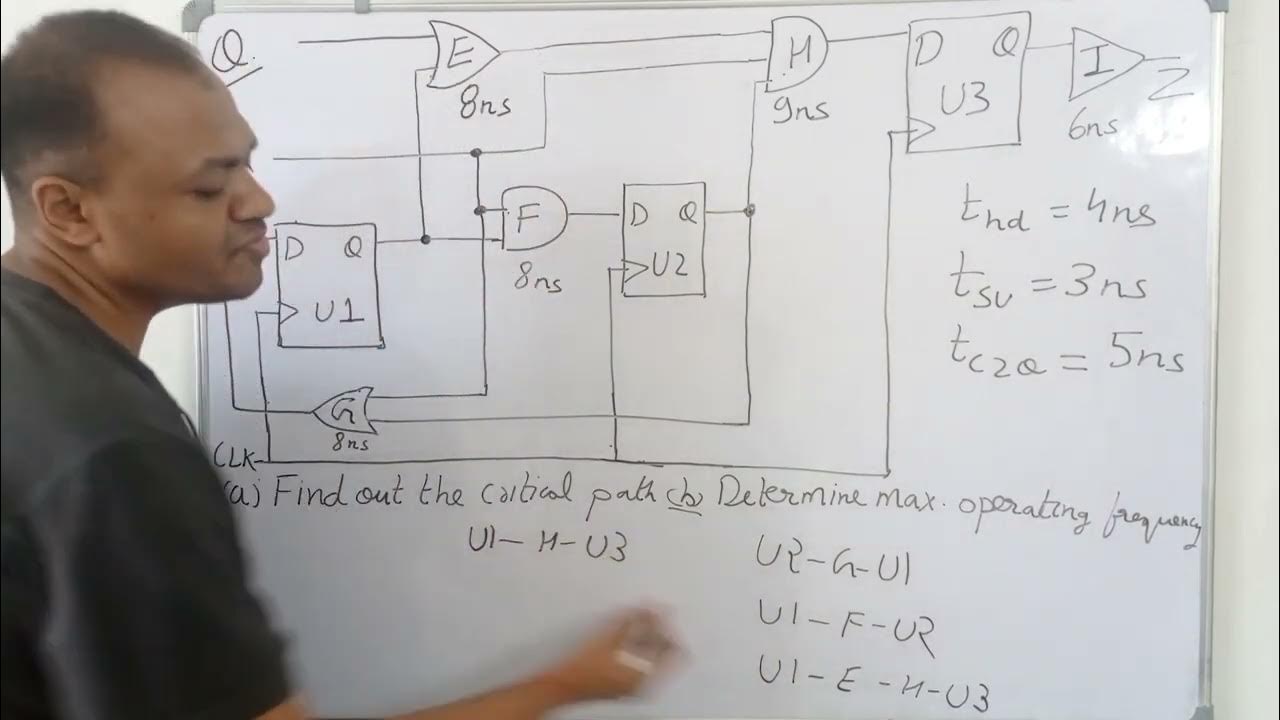 Q.
E
8ns
H
9ns
D Q
U3
I
6ns
Z
D Q
U1
F
8ns
D Q
U2
G
8ns
CLK
thd = 4ns
tsu = 3ns
tc2Q = 5ns
(a) Find out the critical path (b) Determine max. operating frequency
U1 - H - U3
U2 - G - U1
U1 - F - U2
U1 - E - H - U3